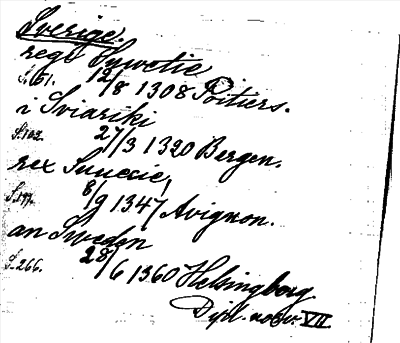 Sverige.
regi Sywecie
S. 61. 12/8 1308 Poitiers.
i Sviariki
S. 102. 27/3 1320 Bergen.
rex Suuecie,
S. 197. 8/9 1347 Avignon.
an Sweden
S. 266. 28/6 1360 Helsingborg
Dipl. norv. VII